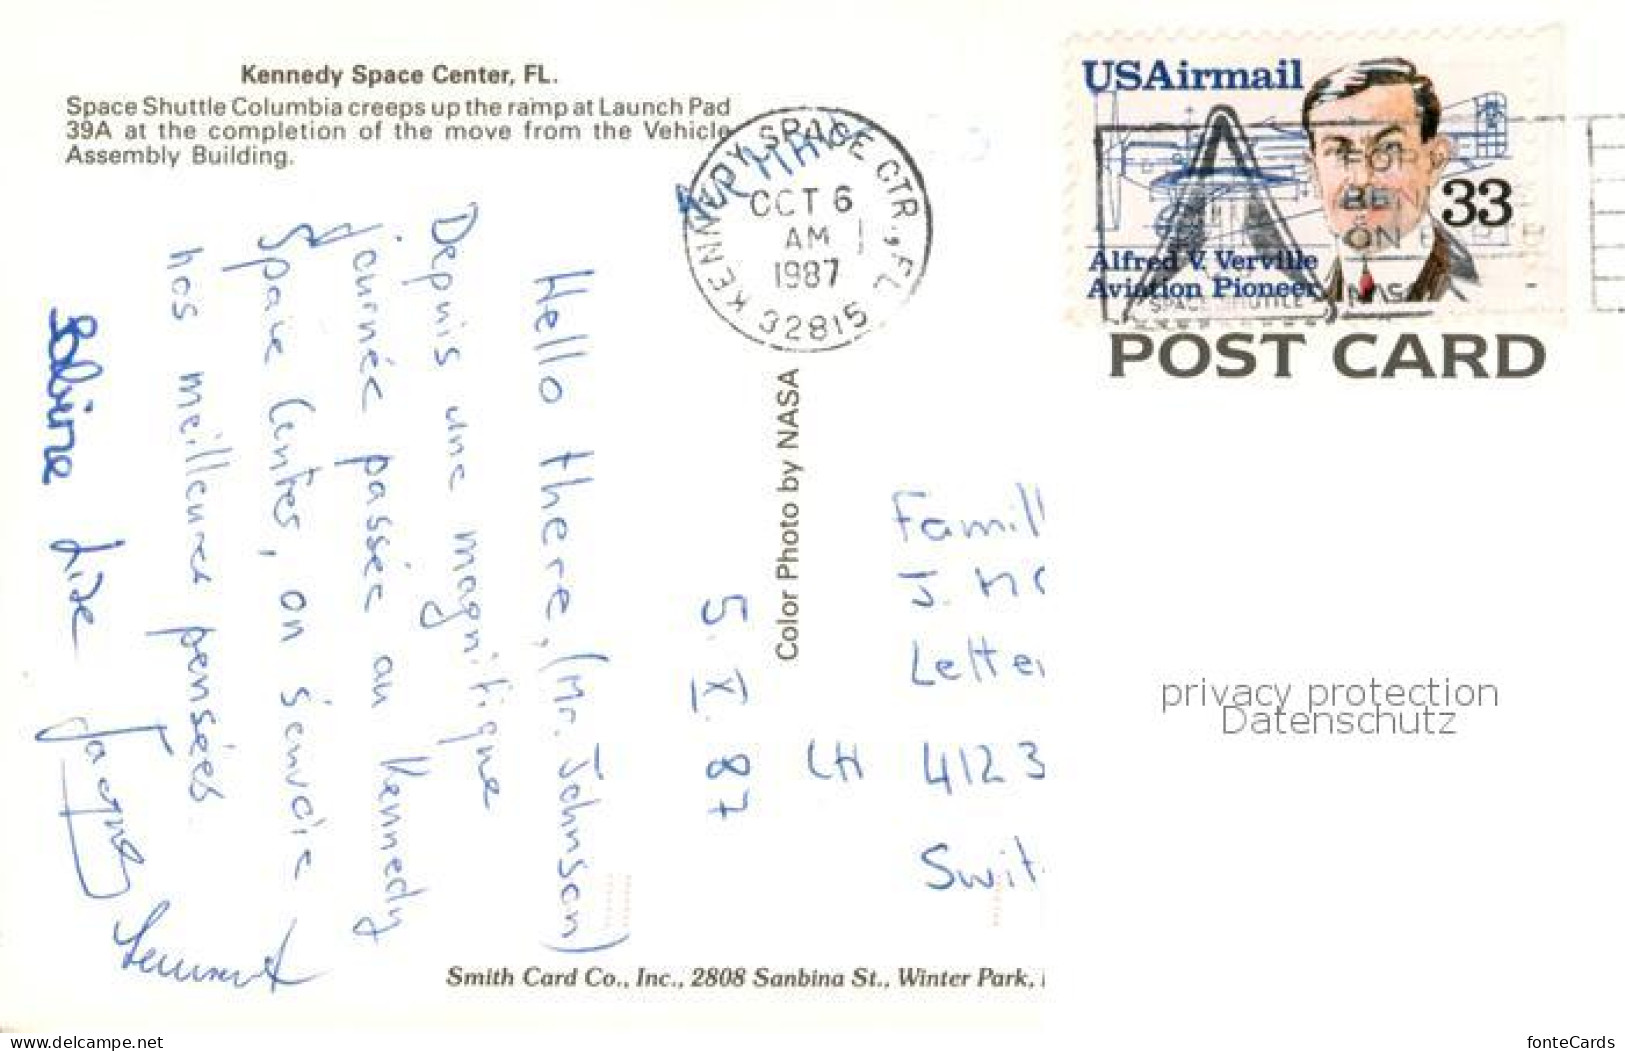 Kennedy Space Center, FL.
Space Shuttle Columbia creeps up the ramp at Launch Pad
39A at the completion of the move from the Vehicle
Assembly Building.
AIR MAIL
KENNEDY SPACE CTR., FL
OCT 6
AM
1987
32815
USAirmail
33
Alfred V. Verville
Aviation Pioneer
FOR
BEN
ON E
SPACE SHUTTLE
NASA
POST CARD
Color Photo by NASA
Hello there, (Mr. Johnson)
Depuis une magnifique
journée passée au Kennedy
Space Center, on s'envoie
nos meilleures pensées
Sabine Lise Jacques
5. X. 87
Famill
J.
Lette
CH 4123
Swit
privacy protection
Datenschutz
Smith Card Co., Inc., 2808 Sanbina St., Winter Park,
www.delcampe.net
fonteCards